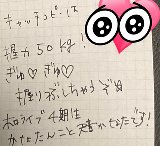 キャッチコピーは
握力50kg!
ぎゅ♡ぎゅ♡
握りつぶしちゃうぞ
ホロライブ4期生
かなたんこと天音かなたです!